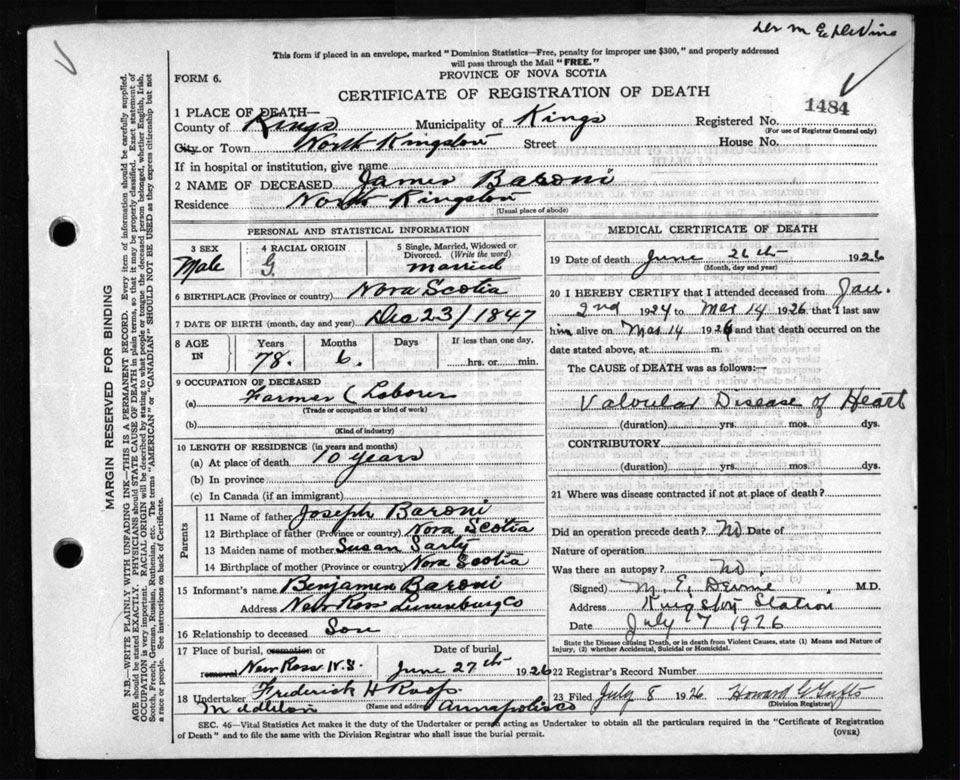 Dr M E DeVine
This form if placed in an envelope, marked "Dominion Statistics—Free, penalty for improper use $300," and properly addressed
will pass through the Mail "FREE."
FORM 6.
PROVINCE OF NOVA SCOTIA
CERTIFICATE OF REGISTRATION OF DEATH
1484
1 PLACE OF DEATH—
County of Kings Municipality of Kings Registered No.
(For use of Registrar General only)
City or Town North Kingston Street House No.
If in hospital or institution, give name
2 NAME OF DECEASED James Baroni
Residence North Kingston
(Usual place of abode)
PERSONAL AND STATISTICAL INFORMATION
3 SEX Male
4 RACIAL ORIGIN G.
5 Single, Married, Widowed or Divorced. (Write the word) Married
6 BIRTHPLACE (Province or country) Nova Scotia
7 DATE OF BIRTH (month, day and year) Dec 23/1847
8 AGE IN Years 78. Months 6. Days If less than one day, hrs. or min.
9 OCCUPATION OF DECEASED
(a) Farmer Laborer
(Trade or occupation or kind of work)
(b)
(Kind of industry)
10 LENGTH OF RESIDENCE (in years and months)
(a) At place of death 10 years
(b) In province
(c) In Canada (if an immigrant)
Parents
11 Name of father Joseph Baroni
12 Birthplace of father (Province or country) Nova Scotia
13 Maiden name of mother Susan
14 Birthplace of mother (Province or country) Nova Scotia
15 Informant's name Benjamin Baroni
Address New Ross Lunenburg Co
16 Relationship to deceased Son
17 Place of burial, cremation or removal New Ross N.S.
Date of burial June 27th 1926
18 Undertaker Frederick H Roop
Middleton (Name and address) Annapolis Co
MEDICAL CERTIFICATE OF DEATH
19 Date of death June 26th 1926
(Month, day and year)
20 I HEREBY CERTIFY that I attended deceased from Jan.
2nd 1924 to Mar 14 1926, that I last saw
him alive on Mar 14 1926 and that death occurred on the
date stated above, at m.
The CAUSE of DEATH was as follows:—
Valvular Disease of Heart
(duration) yrs. mos. dys.
CONTRIBUTORY.
(duration) yrs. mos. dys.
21 Where was disease contracted if not at place of death?
Did an operation precede death? No Date of
Nature of operation
Was there an autopsy? No.
(Signed) M. E. Devine M.D.
Address Kingston Station
Date July 7 1926
State the Disease causing Death, or in death from Violent Causes, state (1) Means and Nature of
Injury, (2) whether Accidental, Suicidal or Homicidal.
22 Registrar's Record Number
23 Filed July 8 1926 Howard G Tufts
(Division Registrar)
SEC. 46—Vital Statistics Act makes it the duty of the Undertaker or person acting as Undertaker to obtain all the particulars required in the "Certificate of Registration
of Death" and to file the same with the Division Registrar who shall issue the burial permit.
(OVER)
MARGIN RESERVED FOR BINDING
N.B.—WRITE PLAINLY WITH UNFADING INK—THIS IS A PERMANENT RECORD. Every item of information should be carefully supplied.
AGE should be stated EXACTLY. PHYSICIANS should STATE CAUSE OF DEATH in plain terms, so that it may be properly classified. Exact statement of
OCCUPATION is very important. RACIAL ORIGIN will be described by stating to what people or tongue the deceased person belonged, whether English, Irish,
Scotch, French, German, Russian, Ruthenian, etc. The terms "AMERICAN" or "CANADIAN" SHOULD NOT BE USED as they express citizenship but not
a race or people. See instructions on back of Certificate.